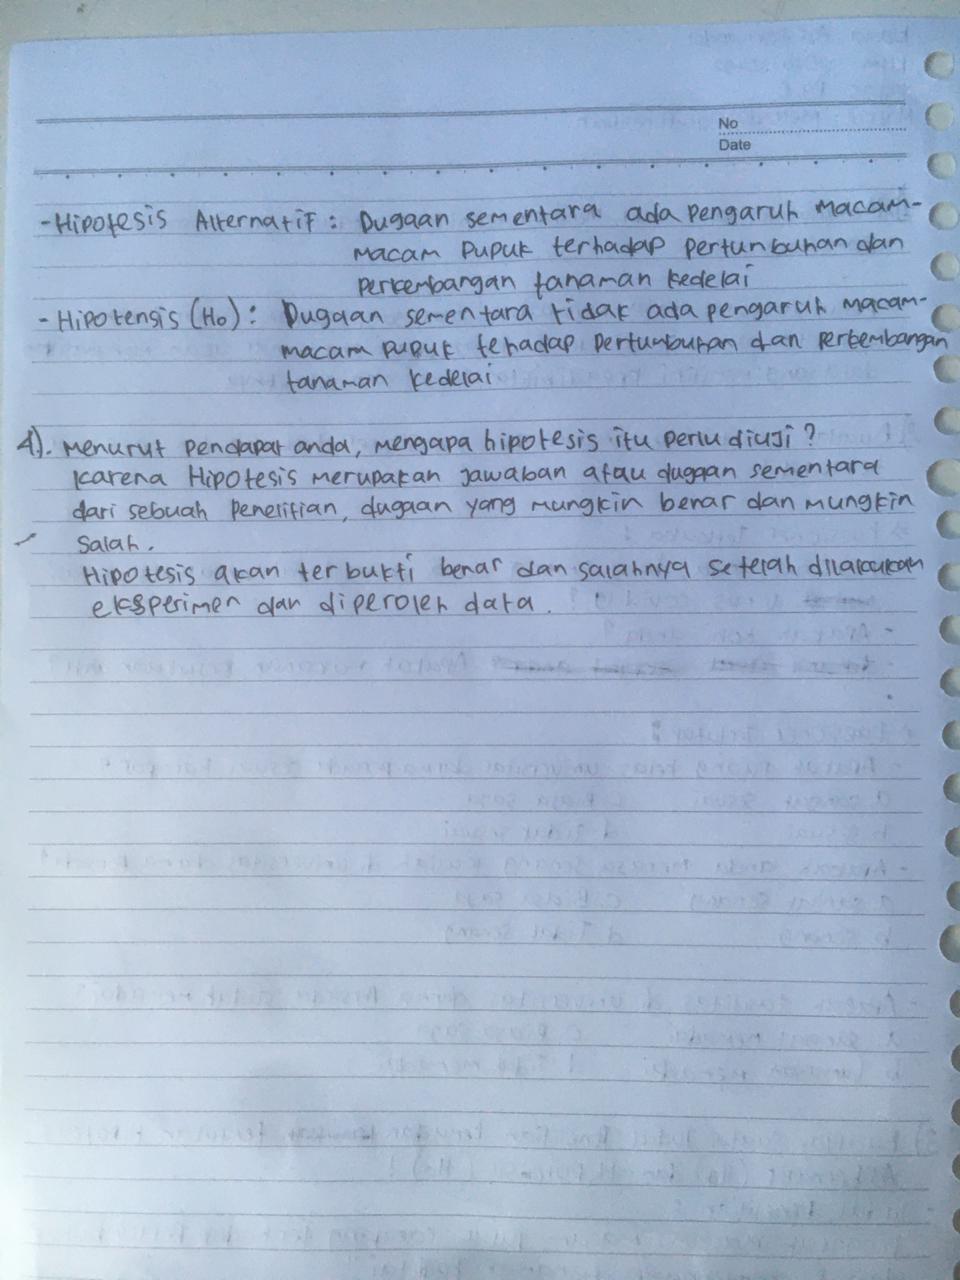 No
Date
- Hipotesis Alternatif : Dugaan sementara ada pengaruh macam-
macam pupuk terhadap pertunbuhan dan
perkembangan tanaman kedelai
- Hipotensis (Ho) : Dugaan sementara tidak ada pengaruh macam-
macam pupuk tehadap pertumbuhan dan perkembangan
tanaman kedelai
4). Menurut pendapat anda, mengapa hipotesis itu perlu diuji ?
Karena Hipotesis merupakan jawaban atau dugaan sementara
dari sebuah penelitian, dugaan yang mungkin benar dan mungkin
salah.
Hipotesis akan terbukti benar dan salahnya setelah dilakukan
eksperimen dan diperoleh data.